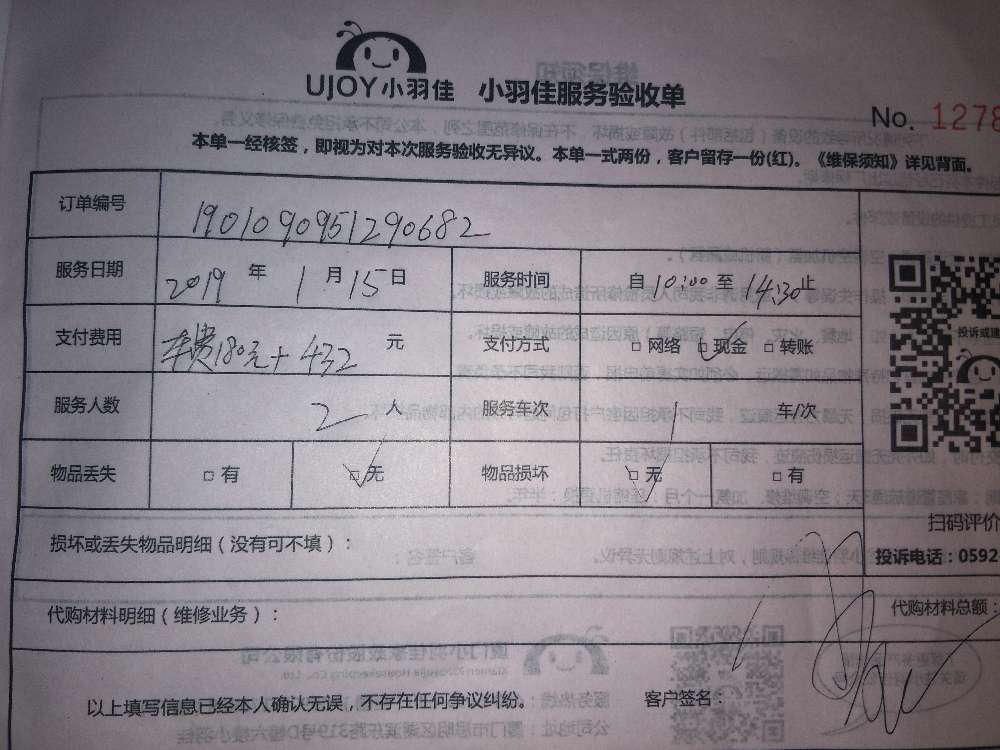 UJOY小羽佳 小羽佳服务验收单
No. 1278
本单一经核签，即视为对本次服务验收无异议。本单一式两份，客户留存一份(红)。《维保须知》详见背面。
订单编号 1901090951290682
服务日期 2019 年 1 月 15 日 服务时间 自 10:00 至 14:30 止
支付费用 车费180元+432 元 支付方式 □ 网络 □ 现金 □ 转账
投诉或建
服务人数 2 人 服务车次 1 车/次
物品丢失 □ 有 □ 无 物品损坏 □ 无 □ 有
扫码评价
损坏或丢失物品明细（没有可不填）：
投诉电话：0592
代购材料明细（维修业务）：
代购材料总额：
以上填写信息已经本人确认无误，不存在任何争议纠纷。 客户签名：